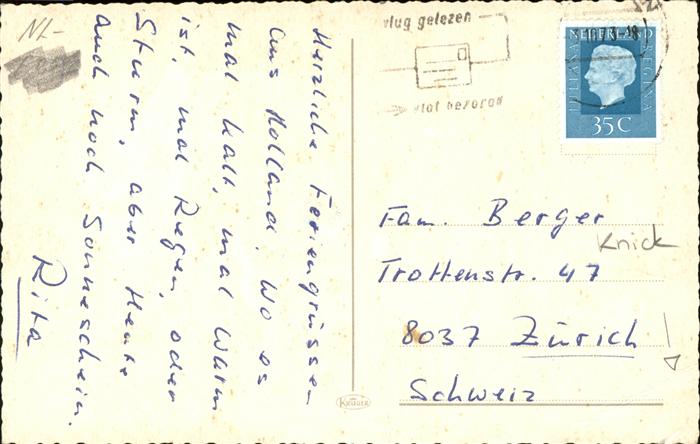 Nl-
Herzliche Feriengrüssen
aus Holland, wo es
mal kalt, mal warm
ist, mal Regen, oder
Sturm, aber Heute
auch noch Sonneschein.
Rita
vlug gelezen
vlot bezorgd
NEDERLAND
JULIANA REGINA
35 C
Fam. Berger
Knick
Trottenstr. 47
8037 Zürich
Schweiz
Krüger